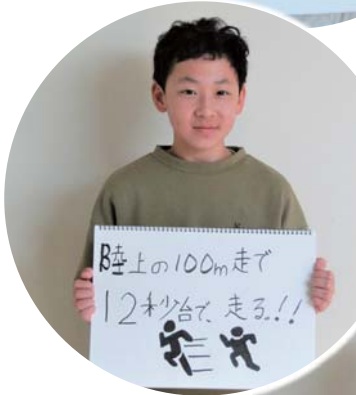 陸上の100m走で
12秒台で、走る。!!